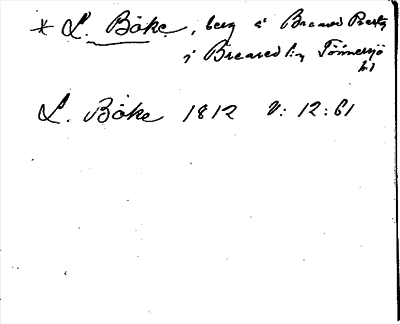 * L. Böke, berg å Breared Prästg
i Breared sn, Tönnersjö
hd
L. Böke 1812 V: 12: 61